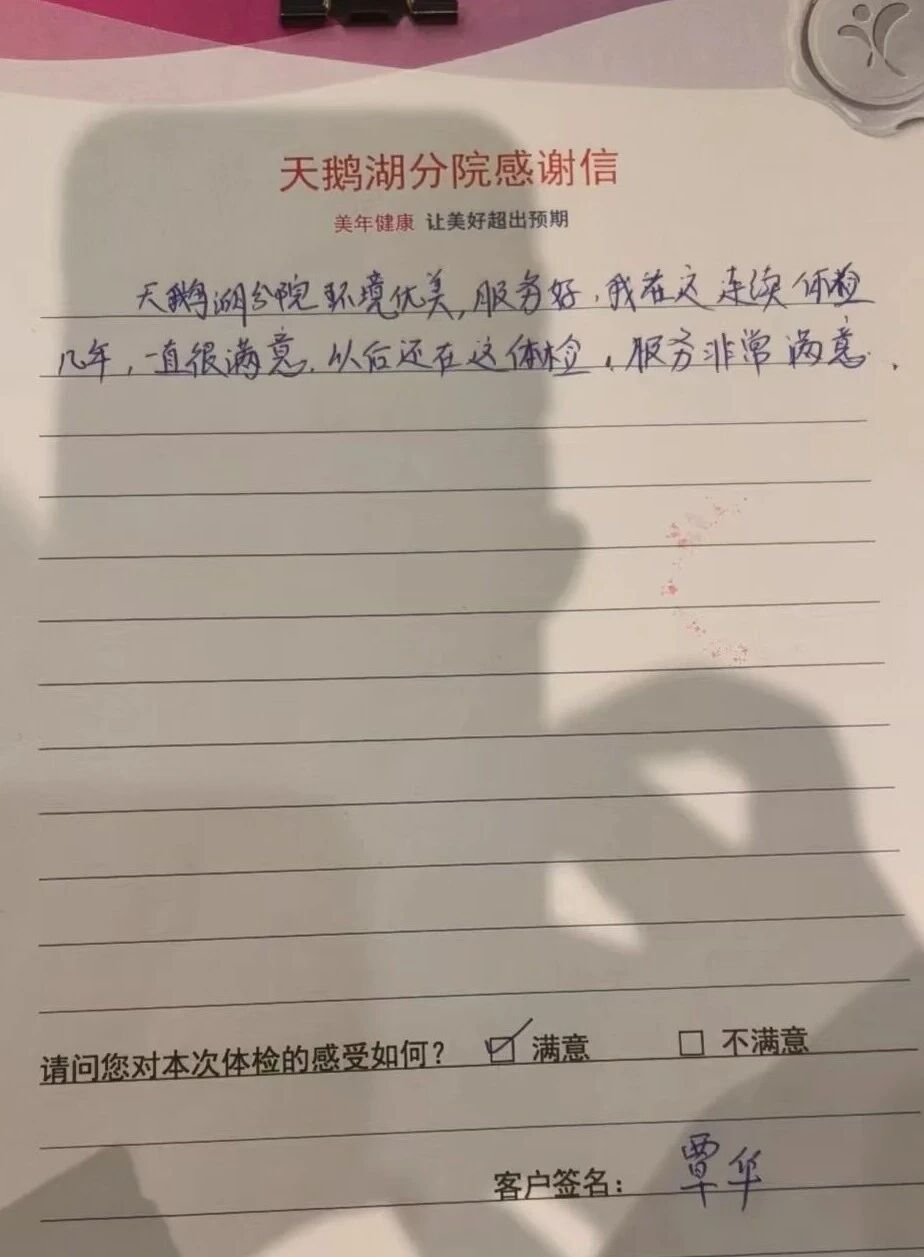 天鹅湖分院感谢信
美年健康 让美好超出预期
天鹅湖分院环境优美,服务好,我在这连续体检
几年,一直很满意.以后还在这体检,服务非常满意.
请问您对本次体检的感受如何? ☑ 满意 □ 不满意
客户签名: 覃华